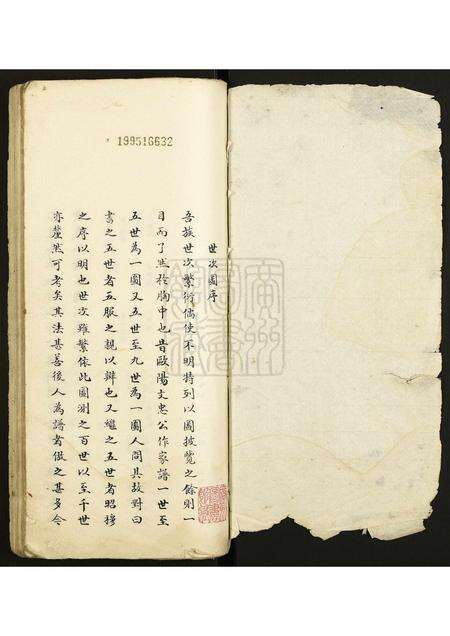 199516632
世次圖序
吾族世次繁衍儻使不明特列以圖披覽之餘則一
目而了然於胸中也昔歐陽文忠公作家譜一世至
五世為一圖又五世至九世為一圖人問其故對曰
書之五世者五服之親以辨也又繼之五世者昭穆
之序以明也世次雖繁依此圖測之百世以至千世
亦釐然可考矣其法甚善後人為譜者倣之甚多今